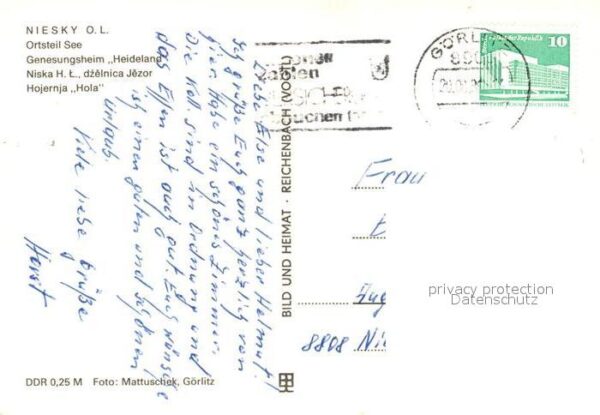 NIESKY O.L.
Ortsteil See
Genesungsheim „Heideland“
Niska H. Ł., dźělnica Jězor
Hojernja „Hola“
Liebe Else und lieber Helmut!
Ich grüße Euch ganz herzlich von
hier. Habe ein schönes Zimmer.
Die Kell sind in Ordnung und
das Essen ist auch gut. Euch wünsche
ich einen guten und schönen
Urlaub.
Viele liebe Grüße
Horst
BILD UND HEIMAT · REICHENBACH (VOGTL)
GÖRLI
10
Frau
8808 Ni
privacy protection
Datenschutz
DDR 0,25 M Foto: Mattuschek, Görlitz